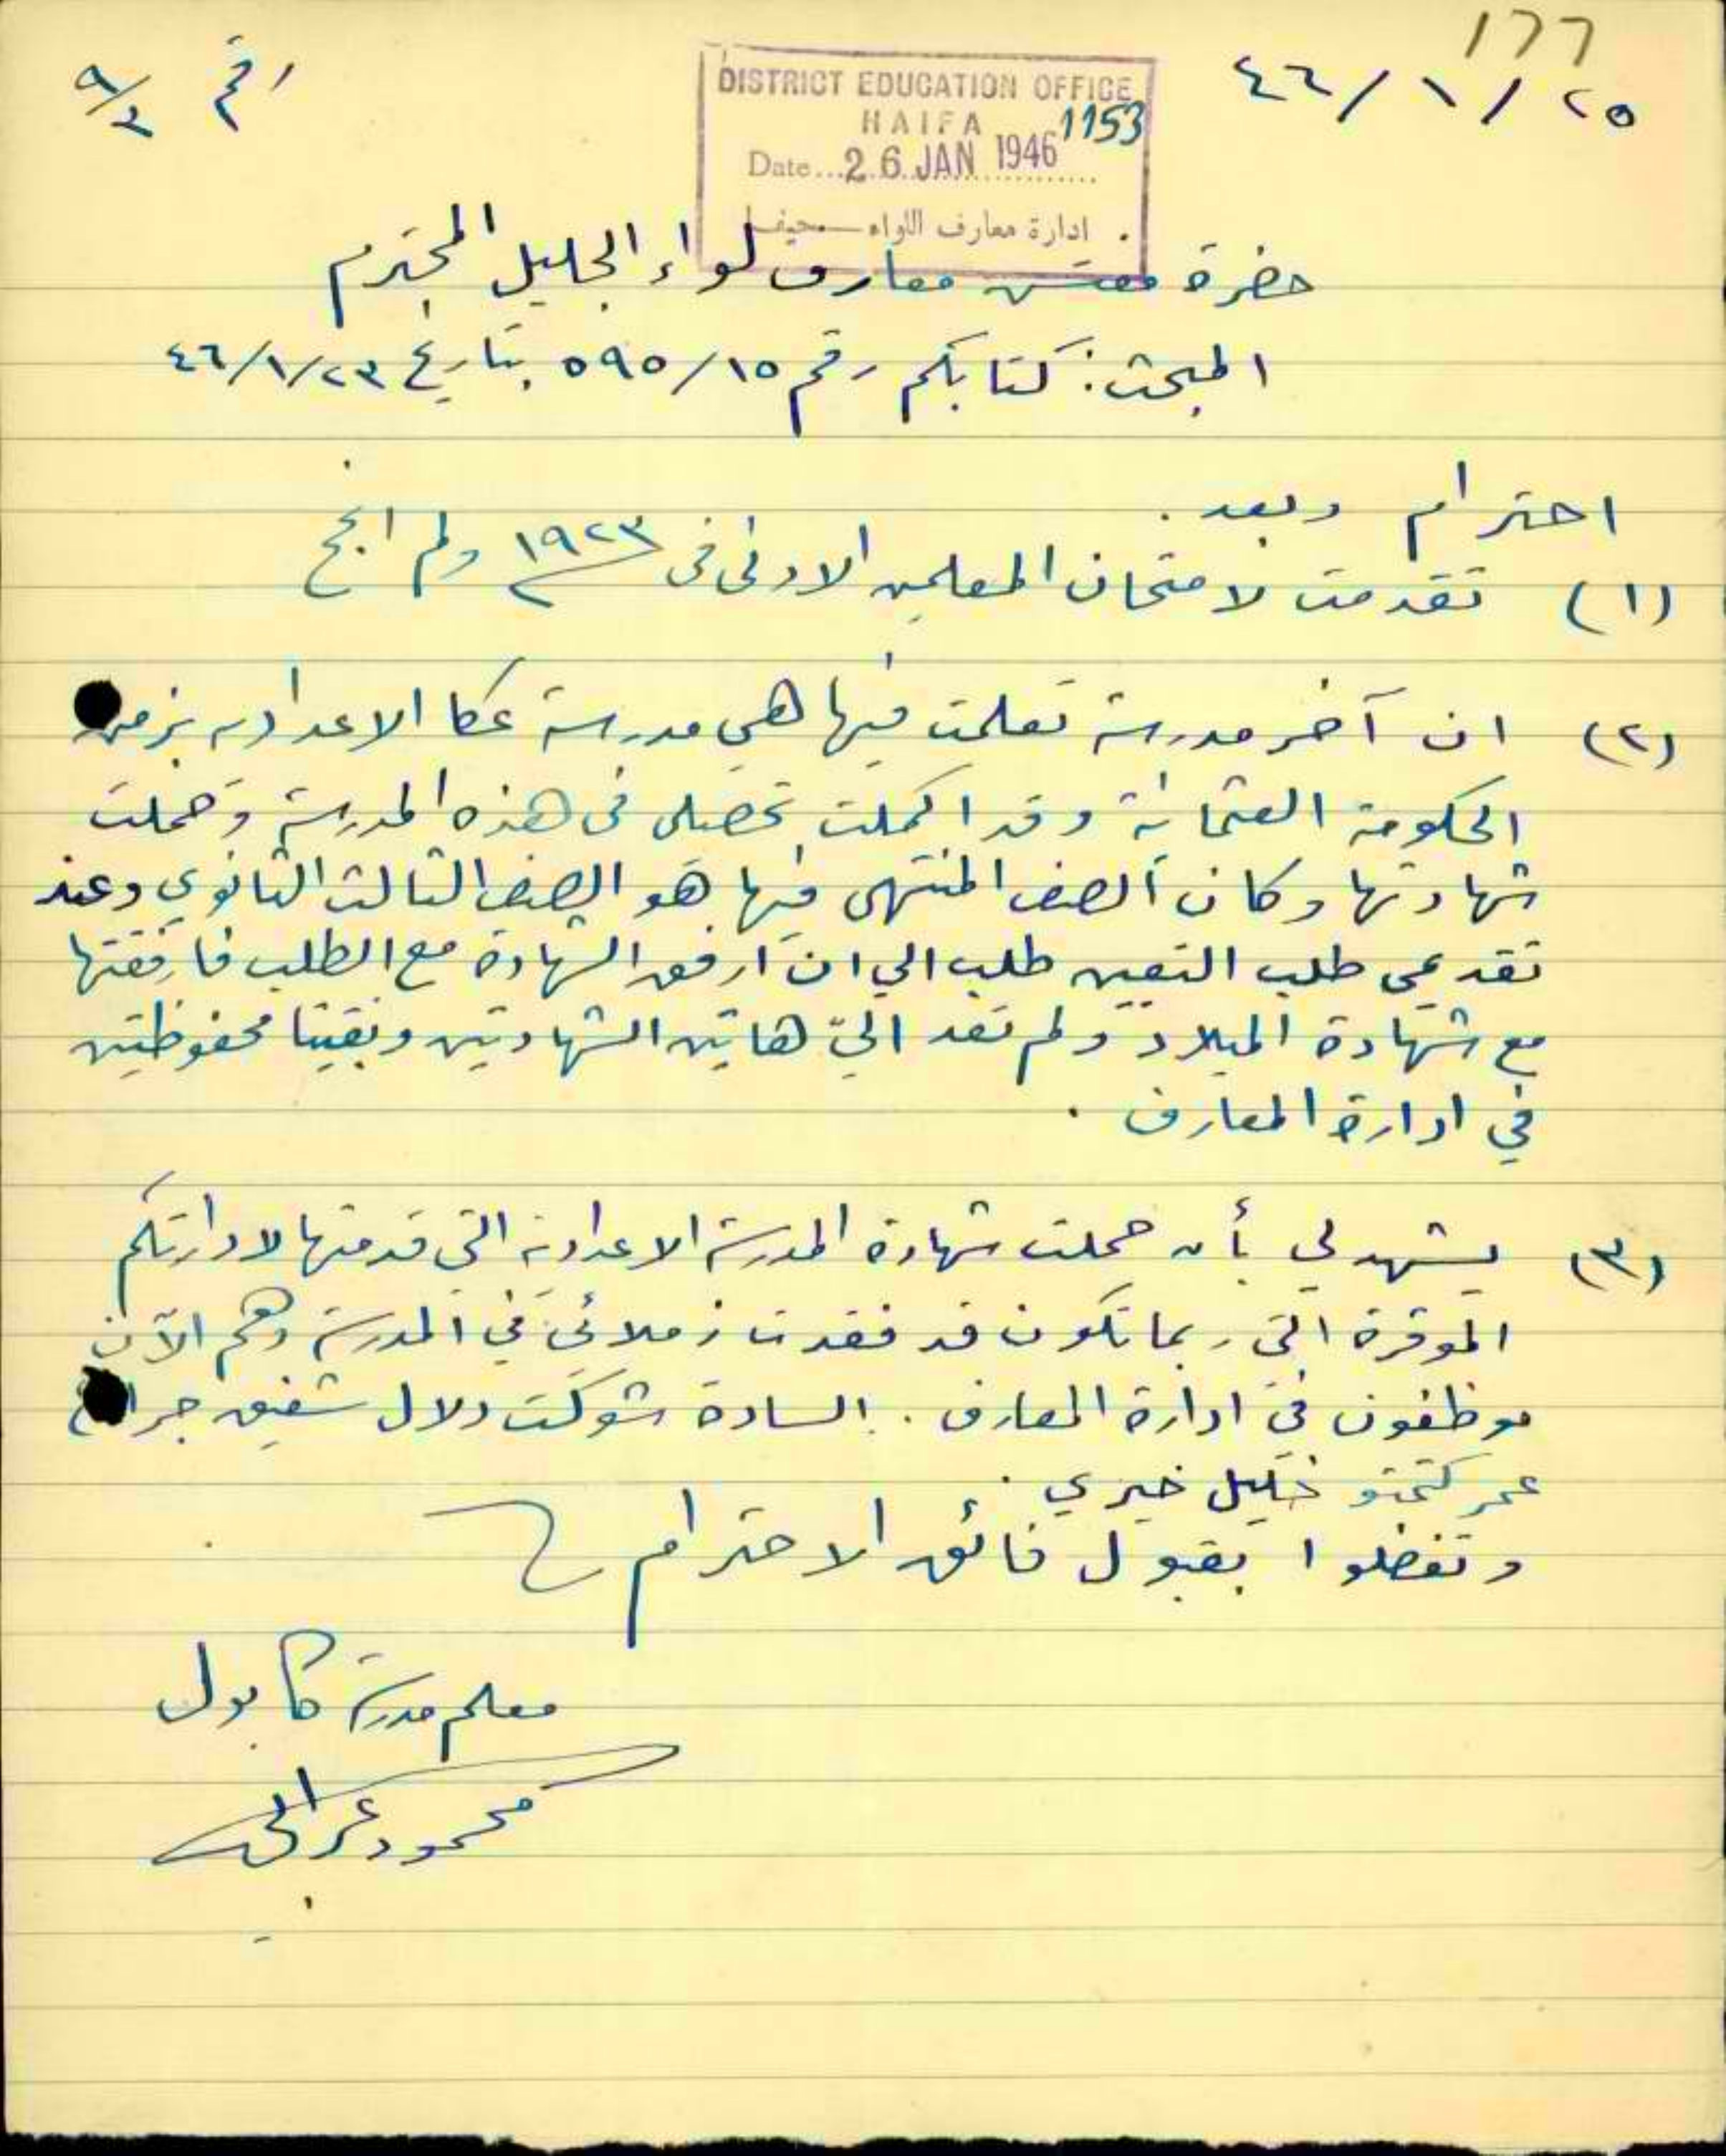 ١٢٦
٤٦/١/٢٥
رقم ٩/٣
DISTRICT EDUCATION OFFICE
HAIFA 1153
Date...26 JAN 1946
ادارة معارف اللواء - حيفا
حضرة مفتش معارف لواء الجليل المحترم
المبحث: كتابكم رقم ٥٩٥/١٥ بتاريخ ٤٦/١/٢٣
احترام وبعد.
(١) تقدمت لامتحان المعلمين الادنى في ١٩٢٣ ولم انجح
(٢) ان آخر مدرسة تعلمت فيها هي مدرسة عكا الاعدادية بزمن
الحكومة العثمانية وقد اكملت تحصيلي في هذه المدرسة وحملت
شهادتها وكان الصف المنتهى فيها هو الصف الثالث الثانوي وعند
تقديمي طلب التعيين طلب الي ان ارفق الشهادة مع الطلب فارفقتها
مع شهادة الميلاد ولم تعد اليّ هاتين الشهادتين وبقيتا محفوظتين
في ادارة المعارف .
(٣) يشهد لي بأن حملت شهادة المدرسة الاعدادية التي قدمتها لادارتكم
الموقرة التي ربما تكون قد فقدت زملائي في المدرسة وهم الآن
موظفون في ادارة المعارف . السادة شوكت دلال شفيق
عمر خليل خيري .
وتفضلوا بقبول فائق الاحترام
معلم مدرسة كابول
محمود عرابي